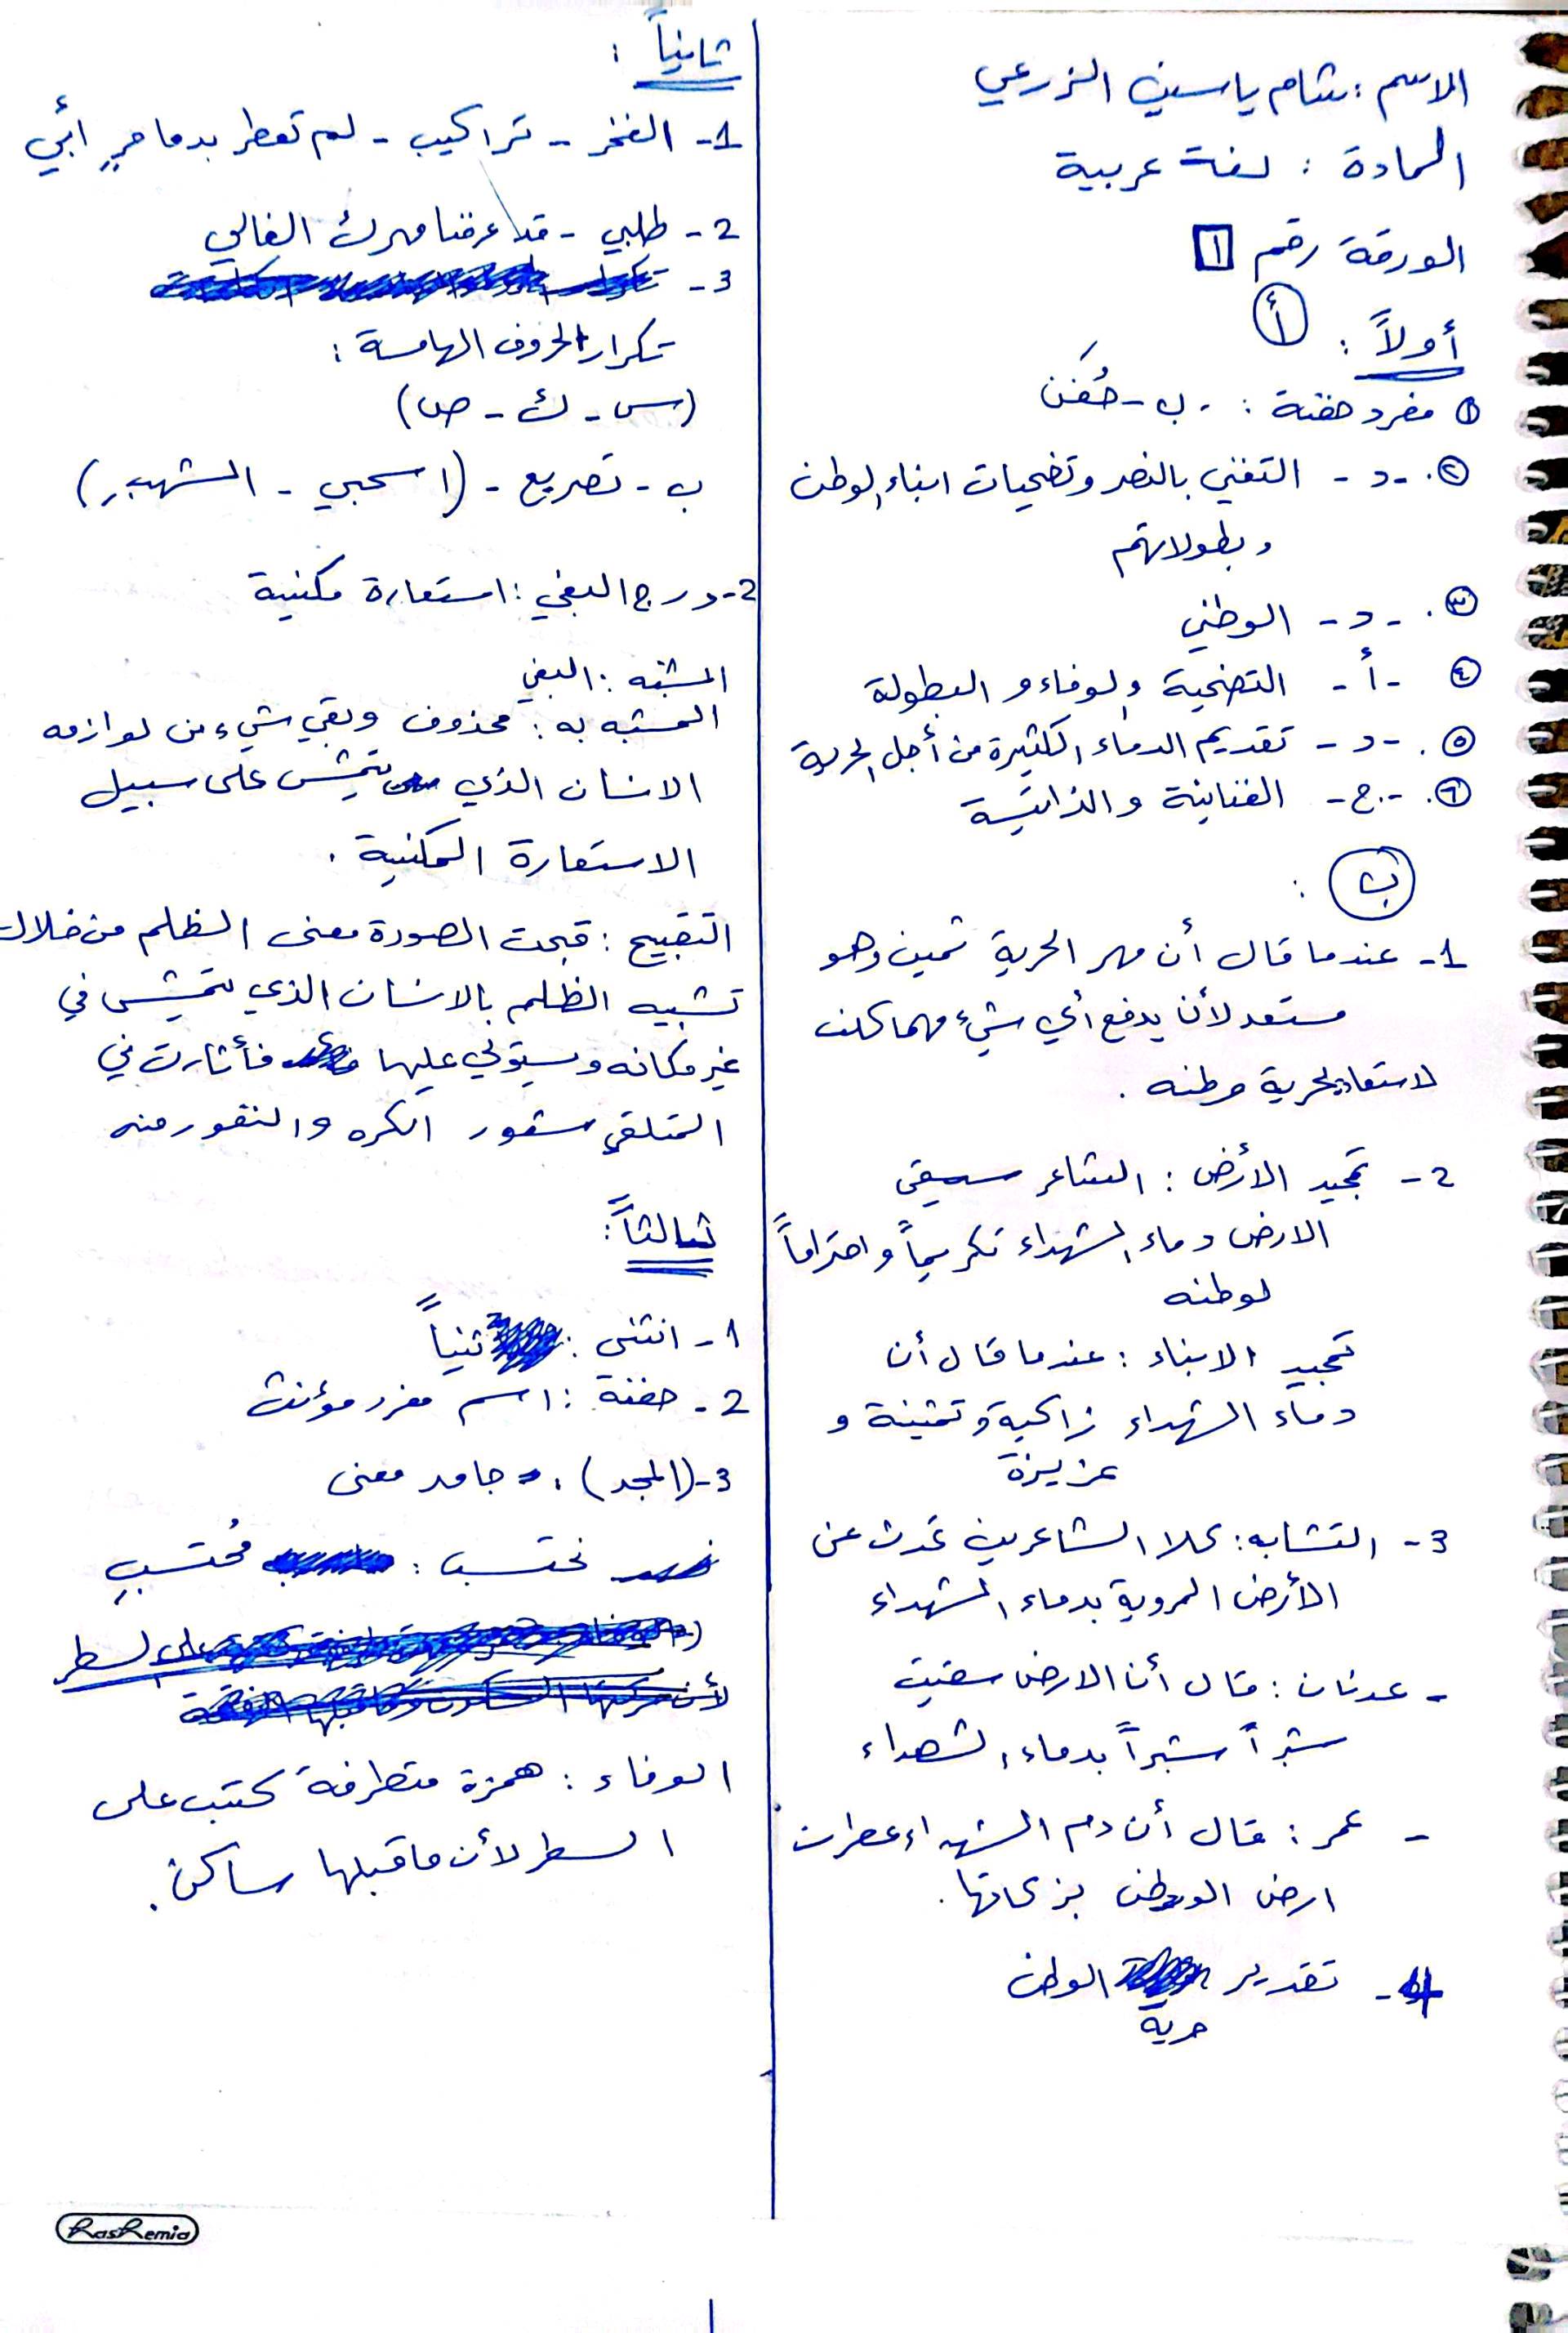 الاسم : شام ياسين الزرعي
المادة : لغة عربية
الورقة رقم 1
أولاً : أ
① مفرد حفنة : . ب - حُفَن
②. - د - التغني بالنصر وتضحيات ابناء الوطن
وبطولاتهم
③. - د - الوطني
④ - أ - التضحية والوفاء و البطولة
⑤. - د - تقديم الدماء الكثيرة من أجل الحرية
⑥. - ج - الغنائية والذاتية
ب :
1- عندما قال أن مهر الحرية ثمين وهو
مستعد لأن يدفع أي شيء مهما كلف
لاستعادة حرية وطنه .
2- تمجيد الأرض : الشاعر سيقى
الارض دماء الشهداء تكريماً واحتراماً
لوطنه
تمجيد الابناء : عندما قال أن
دماء الشهداء زاكية وثمينة و
عزيزة
3- التشابه : كلا الشاعرين تحدث عن
الأرض المروية بدماء الشهداء
- عدنان : قال أن الارض سقيت
شبراً شبراً بدماء الشهداء
- عمر : قال أن دم الشهداء عطرت
ارض الوطن بزكاتها .
4- تقدير حرية الوطن
ثانياً :
1- الفخر - تراكيب - لم تعطر بدما حرٍ أبي
2- طلبي - قد عرفنا مهرك الغالي
3-
تكرار الحروف الهامسة :
(س - ك - ص)
ب - تصريع - (اسحبي - الشهب)
2- درج البغي : استعارة مكنية
المشبه : البغي
المشبه به : محذوف وبقي شيء من لوازمه
الانسان الذي يتمشى على سبيل
الاستعارة المكنية .
التقبيح : قبحت الصورة معنى الظلم من خلال
تشبيه الظلم بالانسان الذي يتمشى في
غير مكانه ويستولي عليها فأثارت في
المتلقي شعور الكره والنفور منه
ثالثاً :
1- انثنى : ثنياً
2- حفنة : اسم مفرد مؤنث
3- (المجد) : جامد معنى
نحتسب : مُحتسِب
الوفاء : همزة متطرفة كتبت على
السطر لأن ما قبلها ساكن .
RasRemia